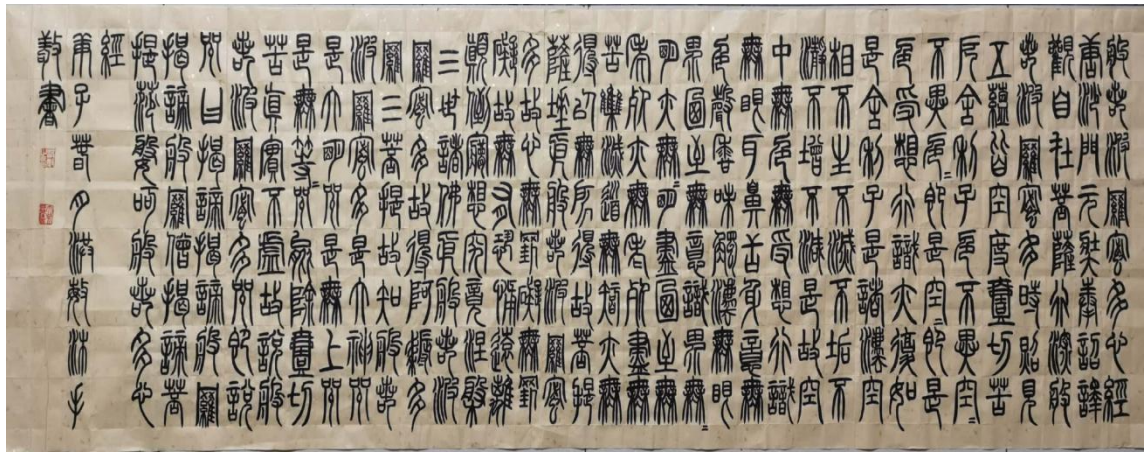 般若波羅蜜多心經
唐沙門元奘奉詔譯
觀自在菩薩行深般
若波羅蜜多時照見
五蘊皆空度壹切苦
厄舍利子色不異空=
不異色=即是空=即是
色受想行識亦復如
是舍利子是諸法空
相不生不滅不垢不
淨不增不減是故空
中無色無受想行識
無眼耳鼻舌身意無
色聲香味觸法無眼
界乃至無意識界無=
明亦無=明盡乃至無
老死亦無老死盡無
苦集滅道無智亦無
得以無所得故菩提
薩埵依般若波羅蜜
多故心無罣礙無罣
礙故無有恐怖遠離
顛倒夢想究竟涅槃
三世諸佛依般若波
羅蜜多故得阿耨多
羅三菩提故知般若
波羅蜜多是大神咒
是大明咒是無上咒
是無等=咒能除壹切
苦真實不虛故說般
若波羅蜜多咒即說
咒曰揭諦揭諦般羅
揭諦般羅僧揭諦菩
提薩婆訶般若多心
經
甲子春月沐手
敬書